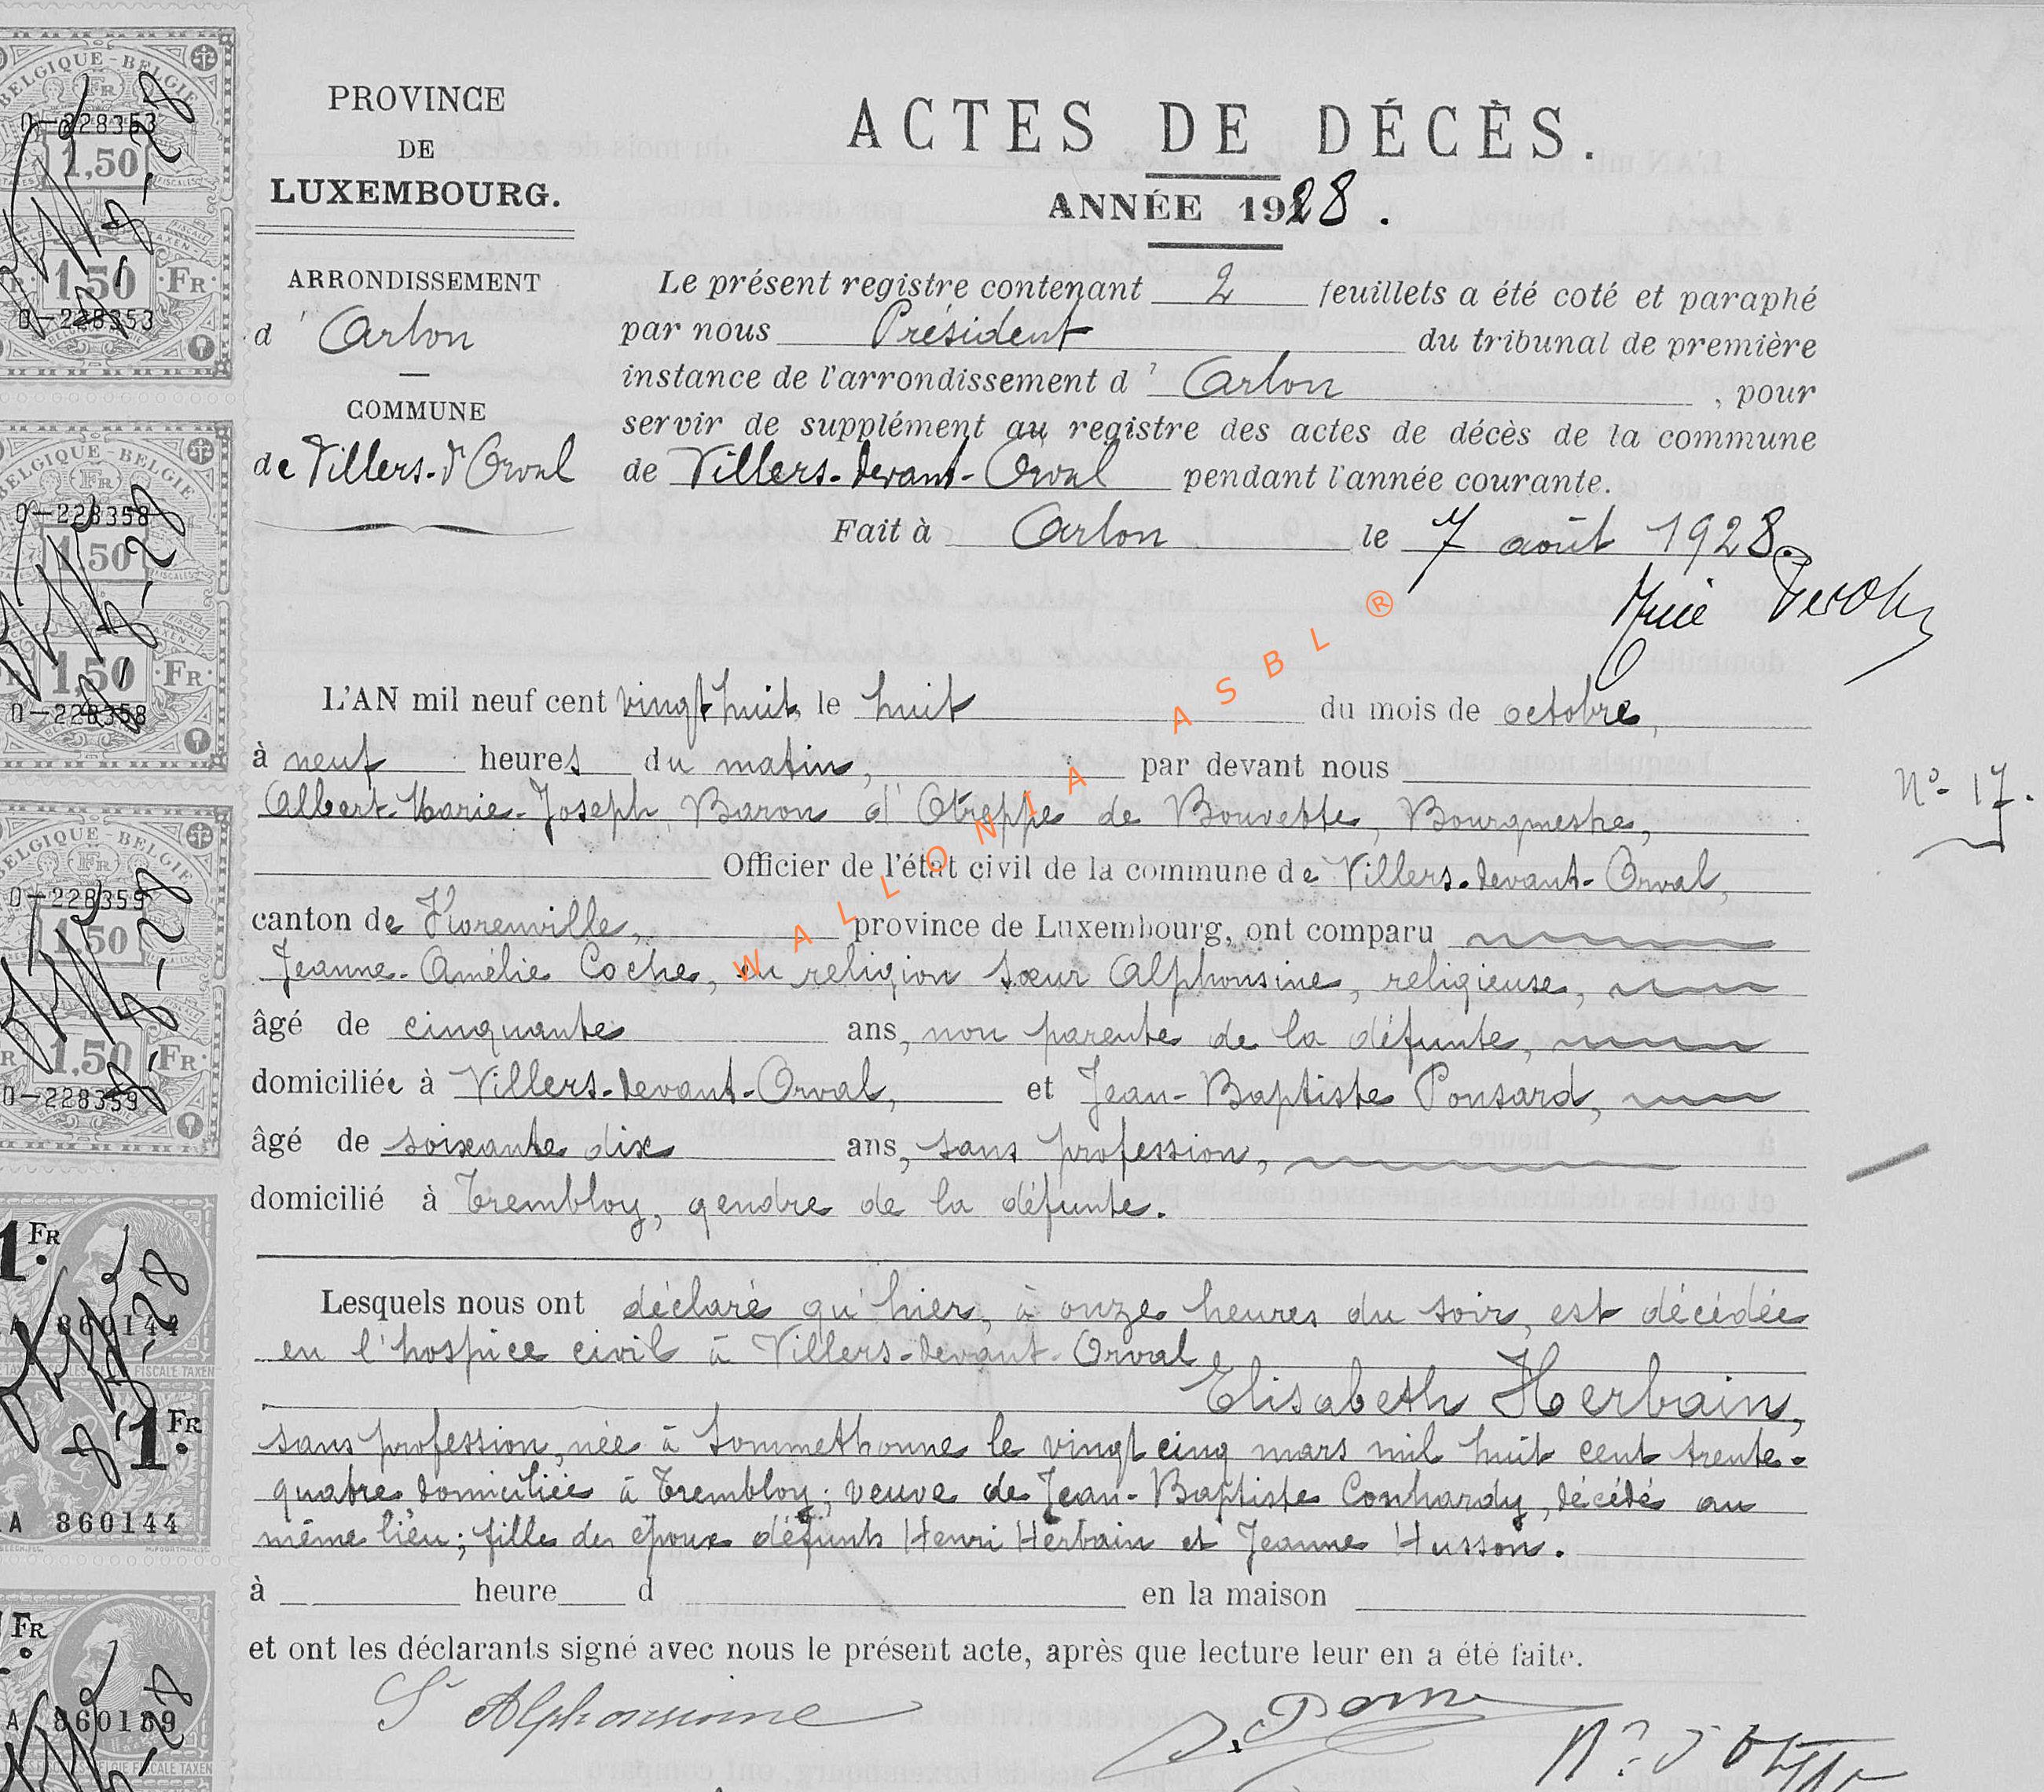 BELGIQUE-BELGIE
FR
0-228353
1,50
1,50 FR
0-228353
BELGIQUE-BELGIE
FR
0-228358
1,50
1,50 FR
0-228358
BELGIQUE-BELGIE
FR
0-228359
1,50
1,50 FR
0-228359
1 FR
A 860144
FISCALE TAXEN
1 FR
A 860144
FR
A 860189
FISCALE TAXEN
PROVINCE
DE
LUXEMBOURG.
ARRONDISSEMENT
d'Arlon
COMMUNE
de Villers-d'Orval
ACTES DE DÉCÈS.
ANNÉE 1928.
Le présent registre contenant 2 feuillets a été coté et paraphé
par nous Président du tribunal de première
instance de l'arrondissement d'Arlon, pour
servir de supplément au registre des actes de décès de la commune
de Villers-devant-Orval pendant l'année courante.
Fait à Arlon le 7 août 1928.
WALLONIA ASBL ®
L'AN mil neuf cent vingt huit, le huit du mois de octobre,
à neuf heures du matin, par devant nous
Albert-Marie-Joseph Baron d'Otreppe de Bouvette, Bourgmestre,
N° 17.
Officier de l'état civil de la commune de Villers-devant-Orval,
canton de Florenville, province de Luxembourg, ont comparu
Jeanne-Amélie Coche, en religion sœur Alphonsine, religieuse,
âgé de cinquante ans, non parente de la défunte,
domiciliée à Villers-devant-Orval, et Jean-Baptiste Ponsard,
âgé de soixante dix ans, sans profession,
domicilié à Trembloy, gendre de la défunte.
Lesquels nous ont déclaré qu'hier, à onze heures du soir, est décédée
en l'hospice civil à Villers-devant-Orval
Elisabeth Herbain,
sans profession, née à Sommethonne le vingt cinq mars mil huit cent trente-
quatre, domiciliée à Trembloy; veuve de Jean-Baptiste Conhardy, décédé au
même lieu; fille des époux défunts Henri Herbain et Jeanne Husson.
à heure d en la maison
et ont les déclarants signé avec nous le présent acte, après que lecture leur en a été faite.
Sr Alphonsine